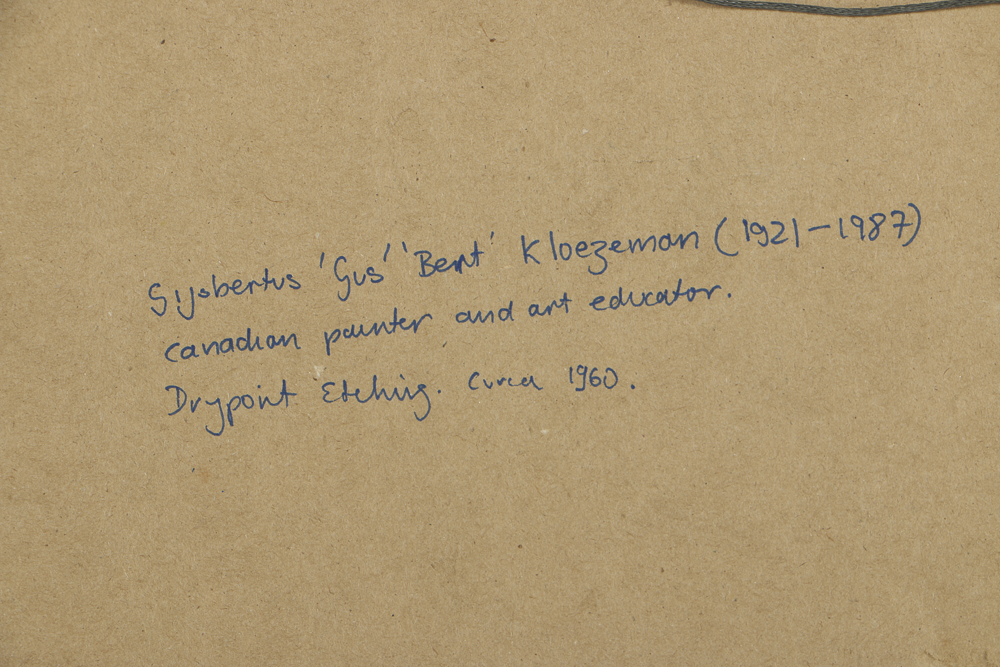 Gijsbertus 'Gus' 'Bert' Kloezeman (1921-1987)
canadian painter and art educator.
Drypoint Etching. Circa 1960.